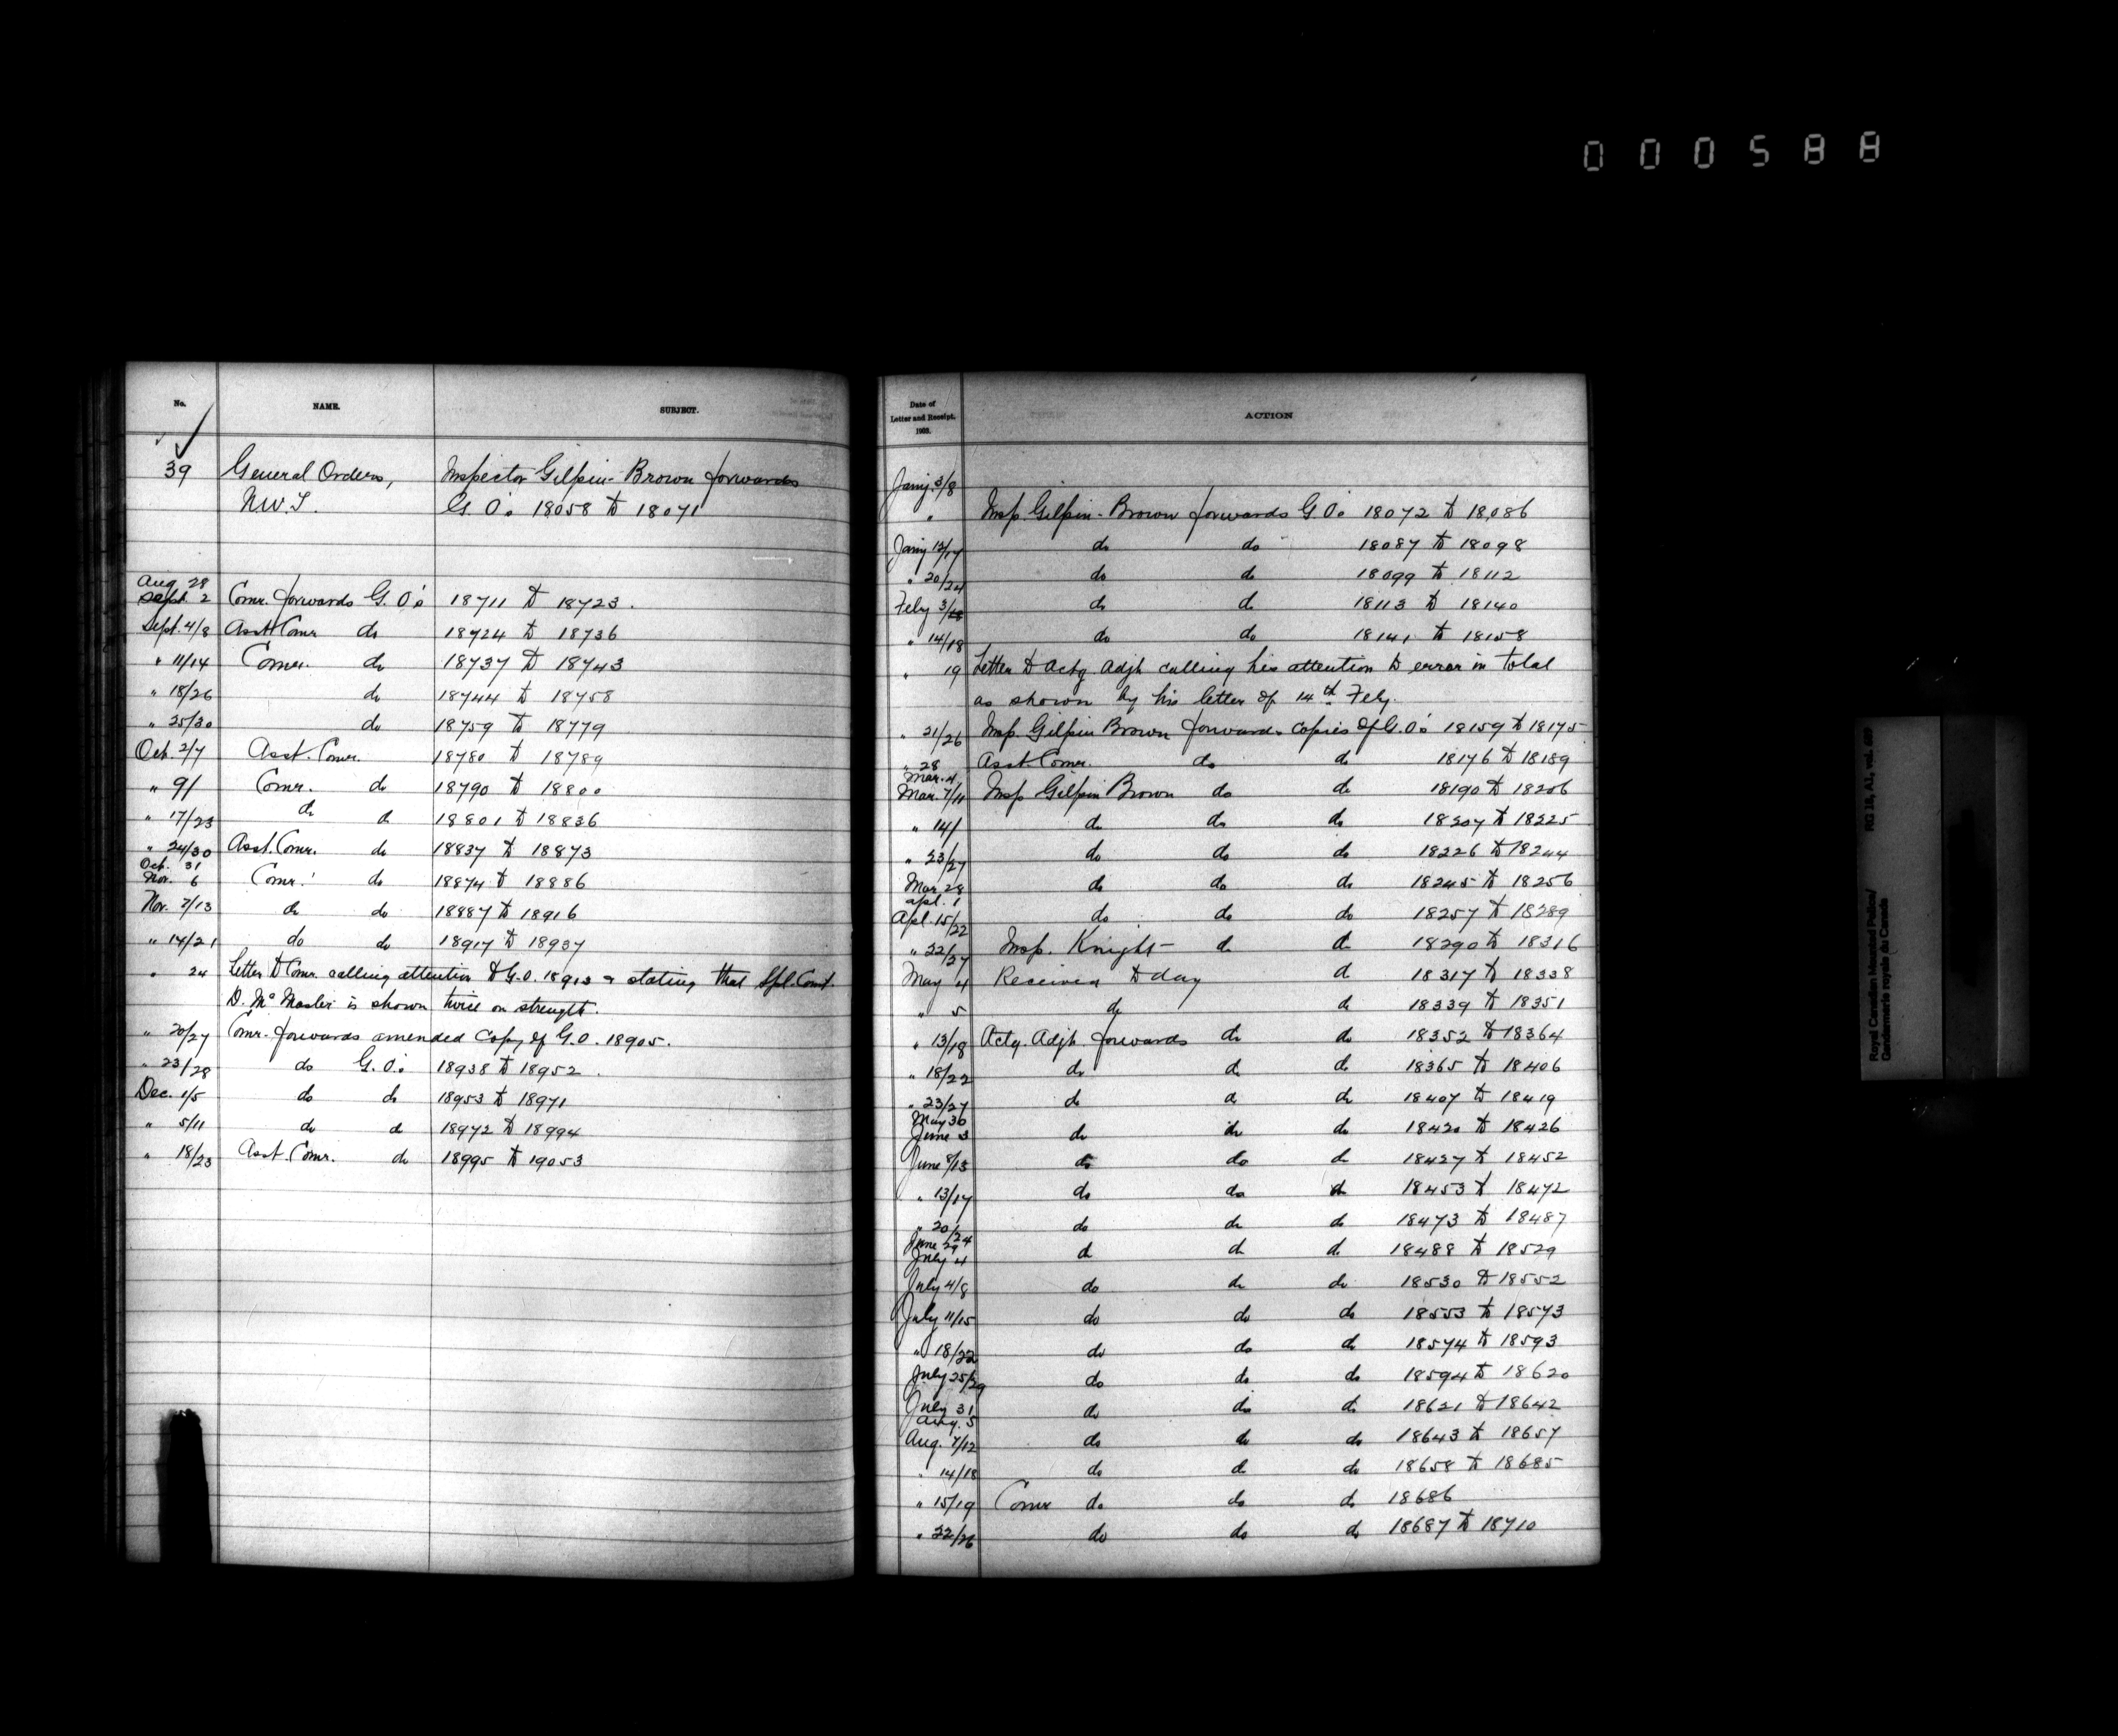 000588
No. NAME. SUBJECT.
39 General Orders, Inspector Gilpin-Brown forwards
N.W.T. G.O's 18058 to 18071
Aug. 28
Sept. 2 Comr. forwards G.O's 18711 to 18723.
Sept. 4/8 Asst. Comr do 18724 to 18736
" 11/14 Comr. do 18737 to 18743
" 18/26 do 18744 to 18758
" 25/30 do 18759 to 18779
Oct. 2/7 Asst. Comr. 18780 to 18789
" 9/ Comr. do 18790 to 18800
" 17/23 do do 18801 to 18836
" 24/30 Asst. Comr. do 18837 to 18873
Oct. 31
Nov. 6 Comr. do 18874 to 18886
Nov. 7/13 do do 18887 to 18916
" 14/21 do do 18917 to 18937
" 24 Letter to Comr. calling attention to G.O. 18913 & stating that Spl. Const.
D. McMaster is shown twice on strength.
" 20/27 Comr. forwards amended copy of G.O. 18905.
" 23/28 do G.O's 18938 to 18952.
Dec. 1/5 do do 18953 to 18971
" 5/11 do do 18972 to 18994
" 18/23 Asst. Comr. do 18995 to 19053
Date of
Letter and Receipt,
1903.
ACTION
Jany. 3/8
" Insp. Gilpin-Brown forwards G.O's 18072 to 18,086
Jany 13/17 do do 18087 to 18098
" 20/24 do do 18099 to 18112
Feby 3/ do do 18113 to 18140
" 14/18 do do 18141 to 18158
" 19 Letter to Actg. Adjt. calling his attention to error in total
as shown by his letter of 14th Feby.
" 21/26 Insp. Gilpin Brown forwards copies of G.O's 18159 to 18175
" 28
Mar. 4 Asst. Comr. do do 18176 to 18189
Mar. 7/11 Insp Gilpin Brown do do 18190 to 18206
" 14/ do do do 18207 to 18225
" 23/27 do do do 18226 to 18244
Mar. 28
Apl. 1 do do do 18245 to 18256
Apl. 15/22 do do do 18257 to 18289
" 22/27 Insp. Knight do do 18290 to 18316
May 4 Received to day do 18317 to 18338
" 5 do do 18339 to 18351
" 13/18 Actg. Adjt. forwards do do 18352 to 18364
" 18/22 do do do 18365 to 18406
" 23/27 do do do 18407 to 18419
May 30
June 3 do do do 18420 to 18426
June 8/13 do do do 18427 to 18452
" 13/17 do do do 18453 to 18472
" 20/24 do do do 18473 to 18487
June 29
July 4 do do do 18488 to 18529
July 4/8 do do do 18530 to 18552
July 11/15 do do do 18553 to 18573
" 18/22 do do do 18574 to 18593
July 25/29 do do do 18594 to 18620
July 31
Aug. 5 do do do 18621 to 18642
Aug. 7/12 do do do 18643 to 18657
" 14/18 do do do 18658 to 18685
" 15/19 Comr do do do 18686
" 22/26 do do do 18687 to 18710
Royal Canadian Mounted Police/ RG 18, A1, vol.
Gendarmerie royale du Canada